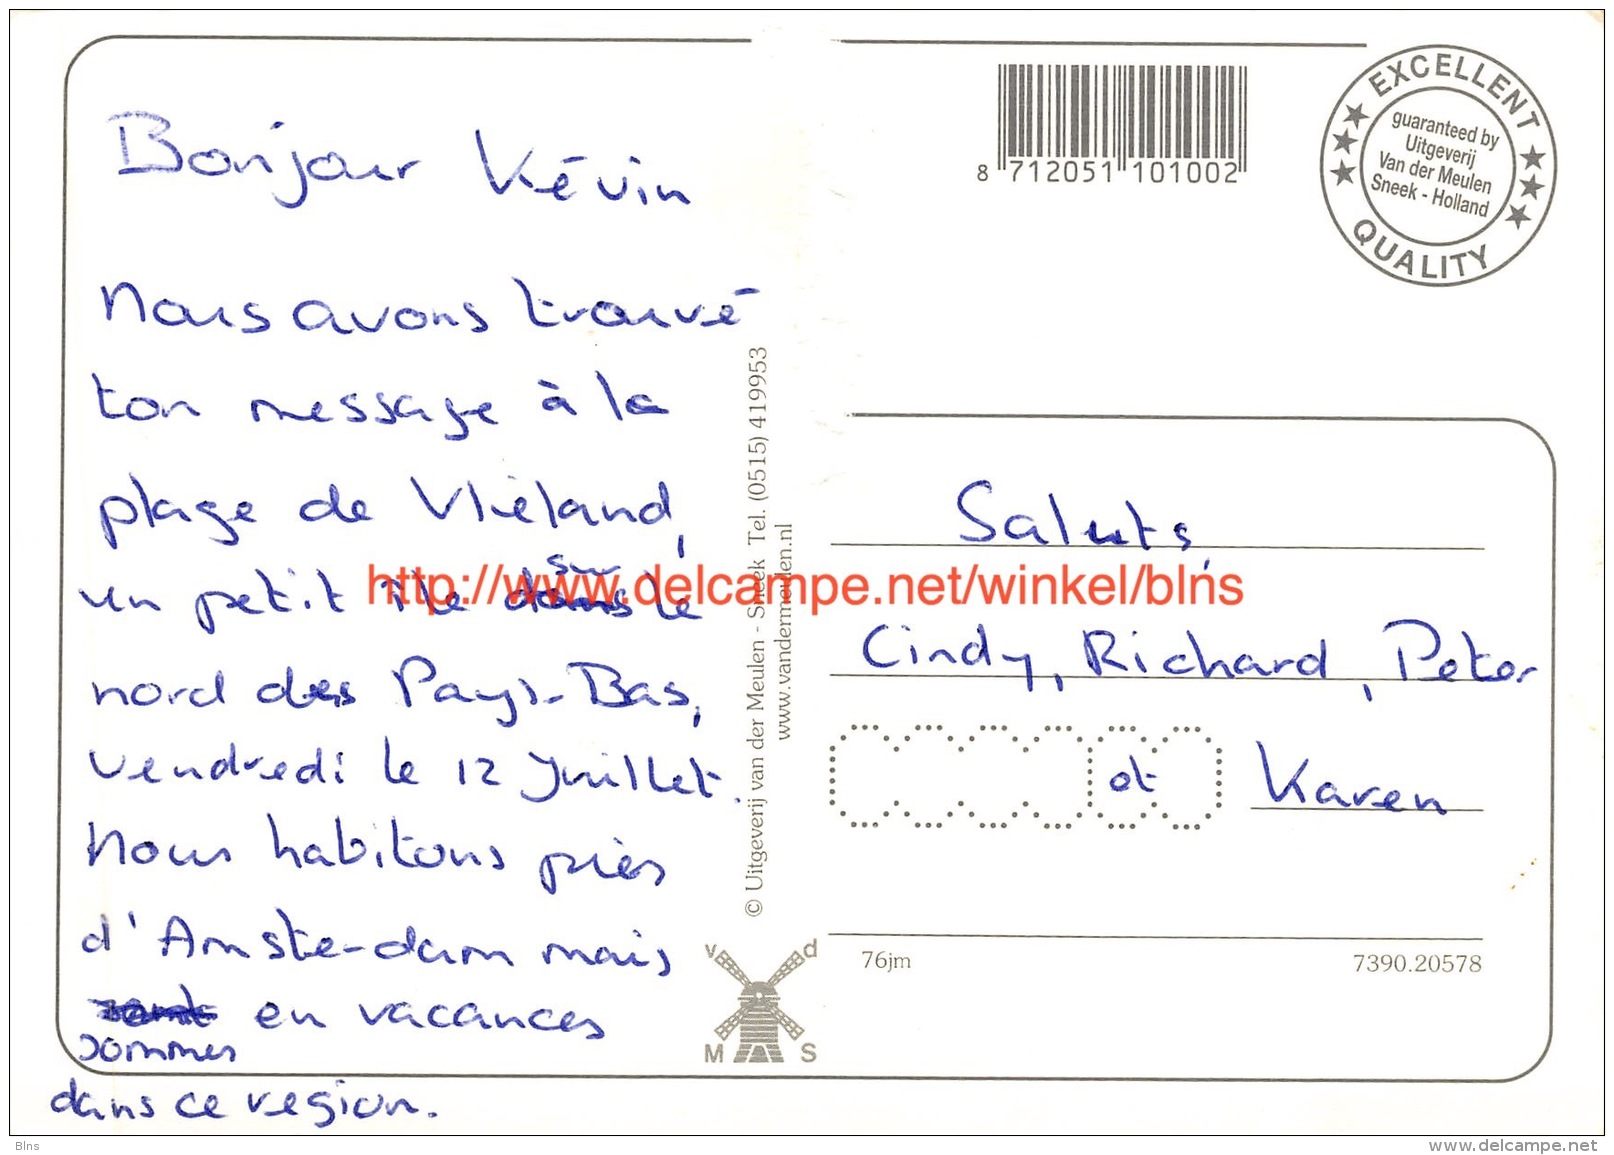 Bonjour Kévin
Nous avons trouvé
ton message à la
plage de Vliéland,
un petit île sur le
nord des Pays-Bas,
vendredi le 12 Juillet.
Nous habitons près
d'Amste-dam mais
en vacances
sommes
dans ce region.
© Uitgeverij van der Meulen - Sneek Tel. (0515) 419953
www.vandermeulen.nl
8 712051 101002
EXCELLENT
guaranteed by
Uitgeverij
Van der Meulen
Sneek - Holland
QUALITY
Saluts,
Cindy, Richard, Peter
et Karen
v d
M S
76jm
7390.20578
http://www.delcampe.net/winkel/blns
Blns
www.delcampe.net